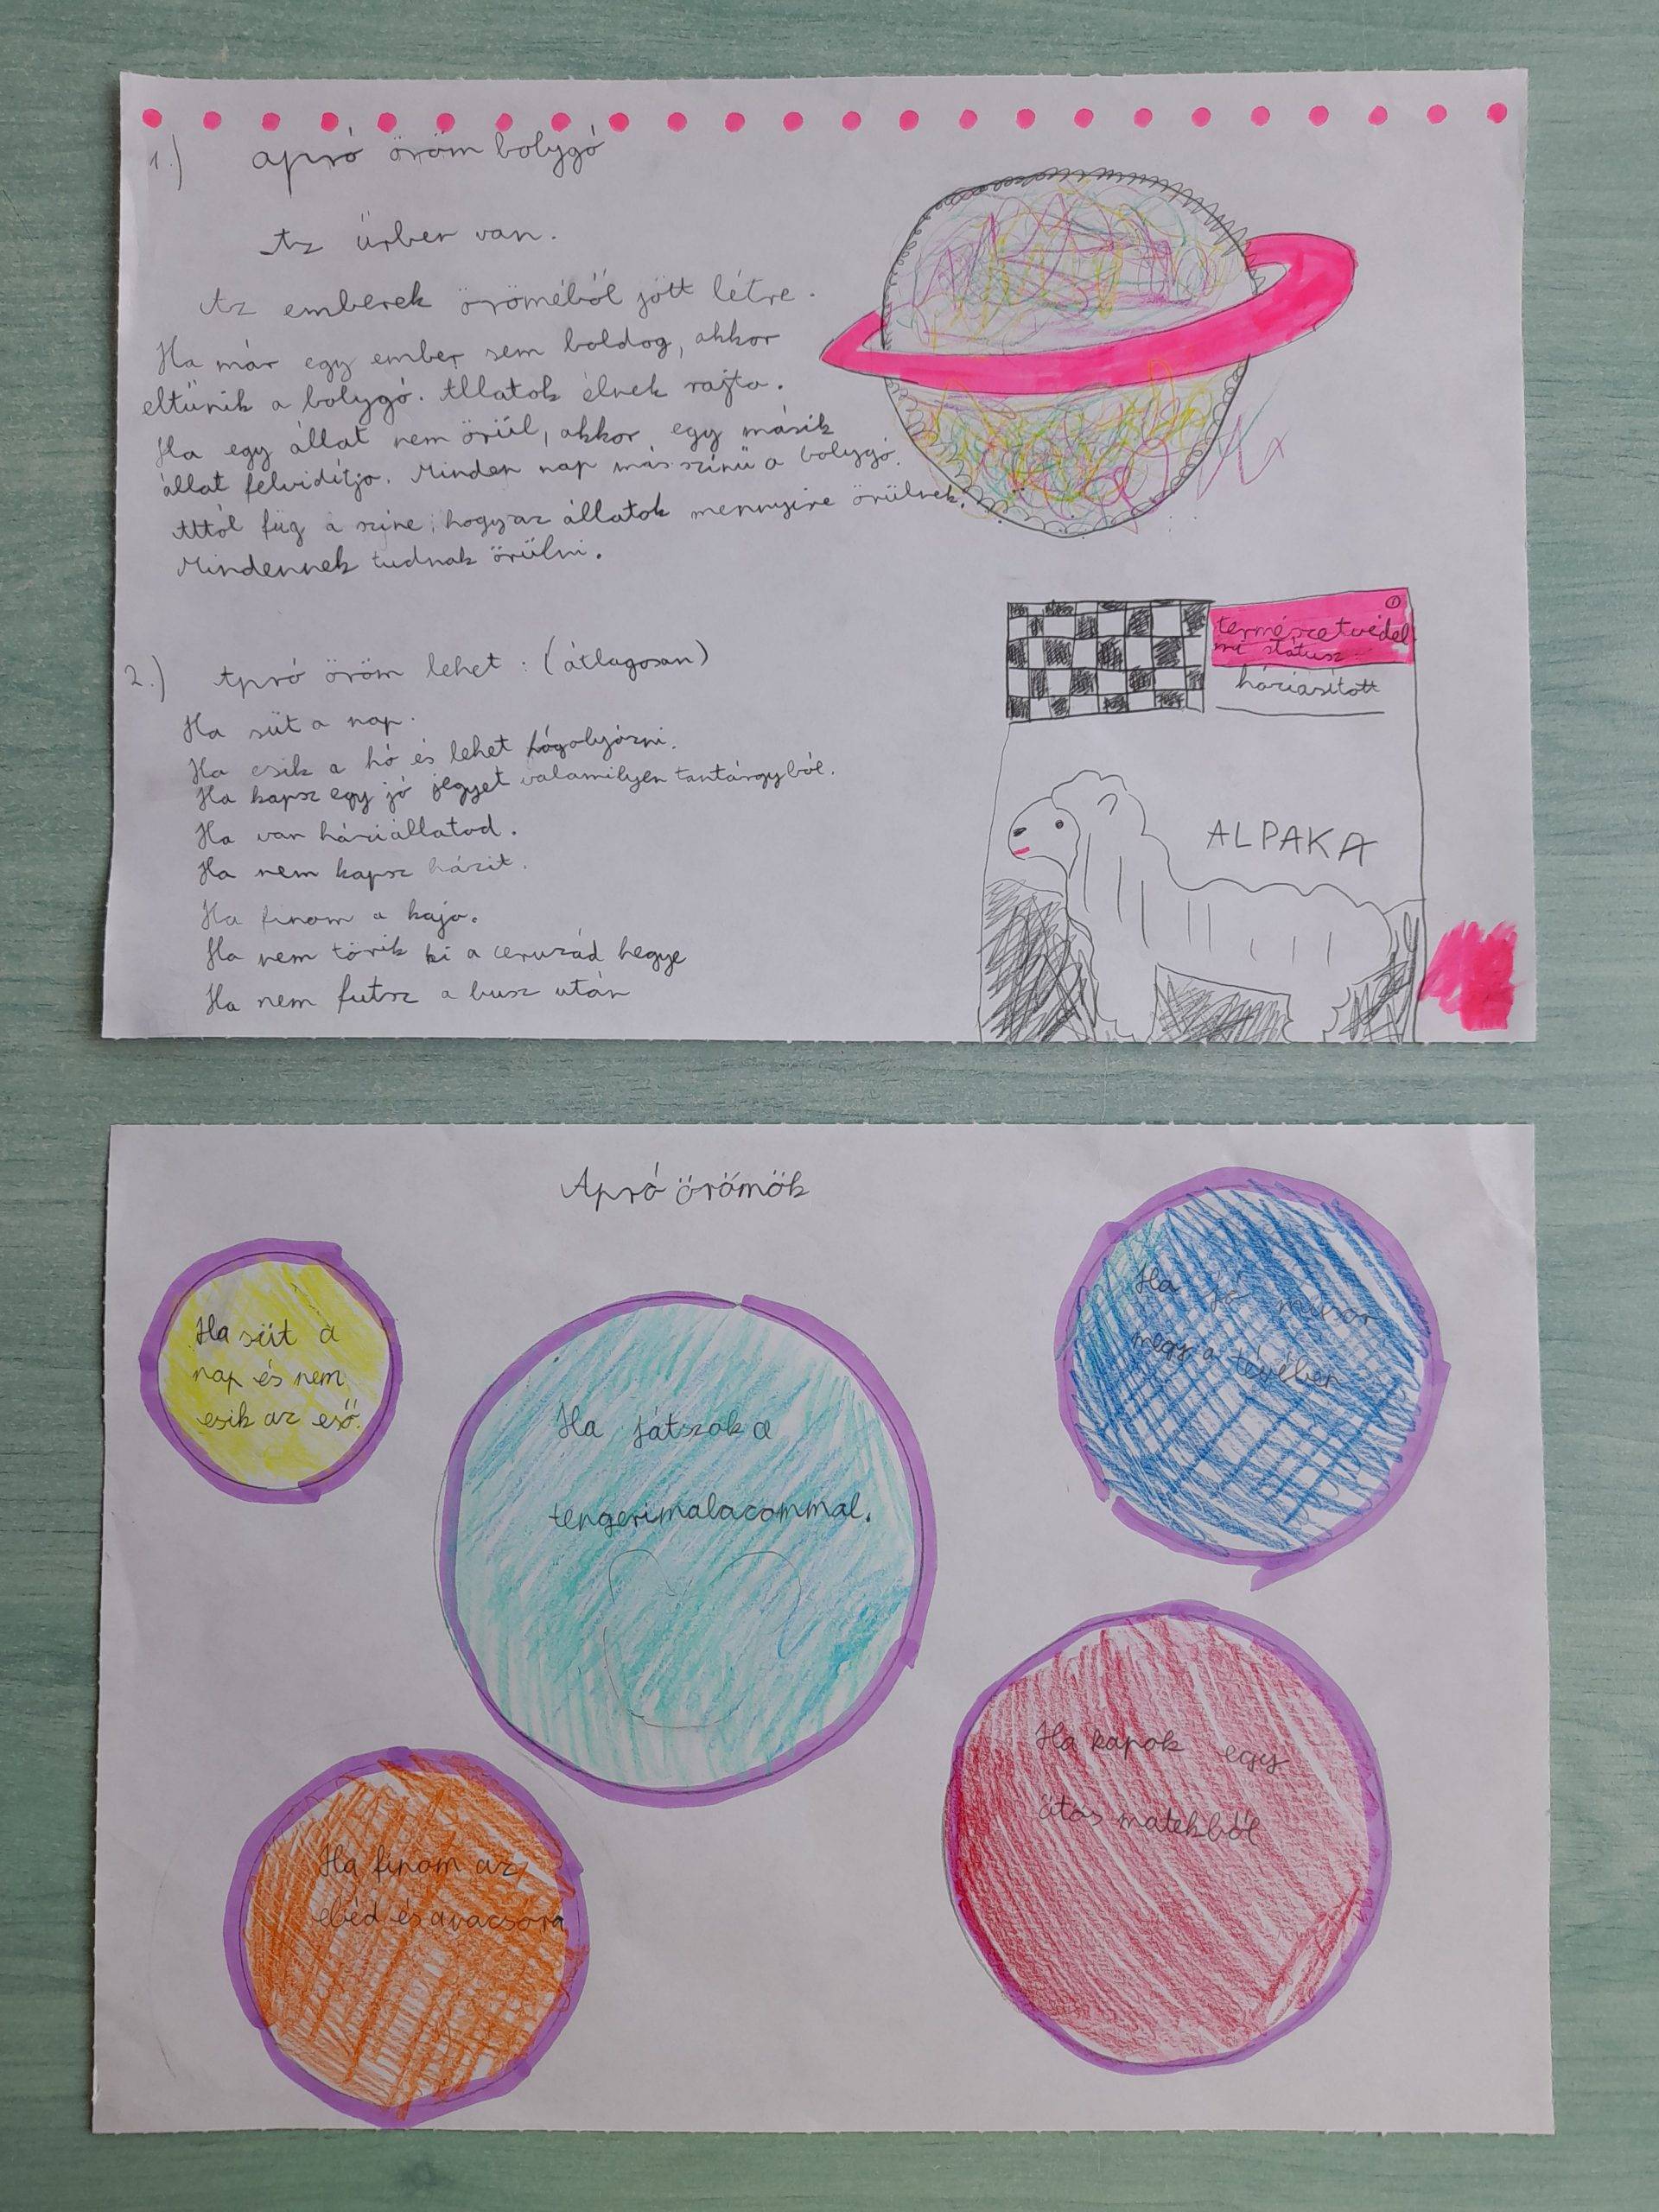 1.) apró öröm bolygó
Az űrben van.
Az emberek öröméből jött létre.
Ha már egy ember sem boldog, akkor
eltűnik a bolygó. Állatok élnek rajta.
Ha egy állat nem örül, akkor egy másik
állat felvidítja. Minden nap más színű a bolygó.
Attól füg a színe, hogy az állatok mennyire örülnek.
Mindennek tudnak örülni.
2.) Apró öröm lehet: (átlagosan)
Ha süt a nap.
Ha esik a hó és lehet hógolyózni.
Ha kapsz egy jó jegyet valamilyen tantárgyból.
Ha van háziállatod.
Ha nem kapsz házit.
Ha finom a kaja.
Ha nem törik ki a ceruzád hegye
Ha nem futsz a busz után
természetvédel
mi státusz
háziasított
ALPAKA
Apró örömök
Ha süt a
nap és nem
esik az eső.
Ha játszok a
tengerimalacommal.
Ha jó műsor
megy a tévében
Ha kapok egy
ötös matekból
Ha finom az
ebéd és a vacsora